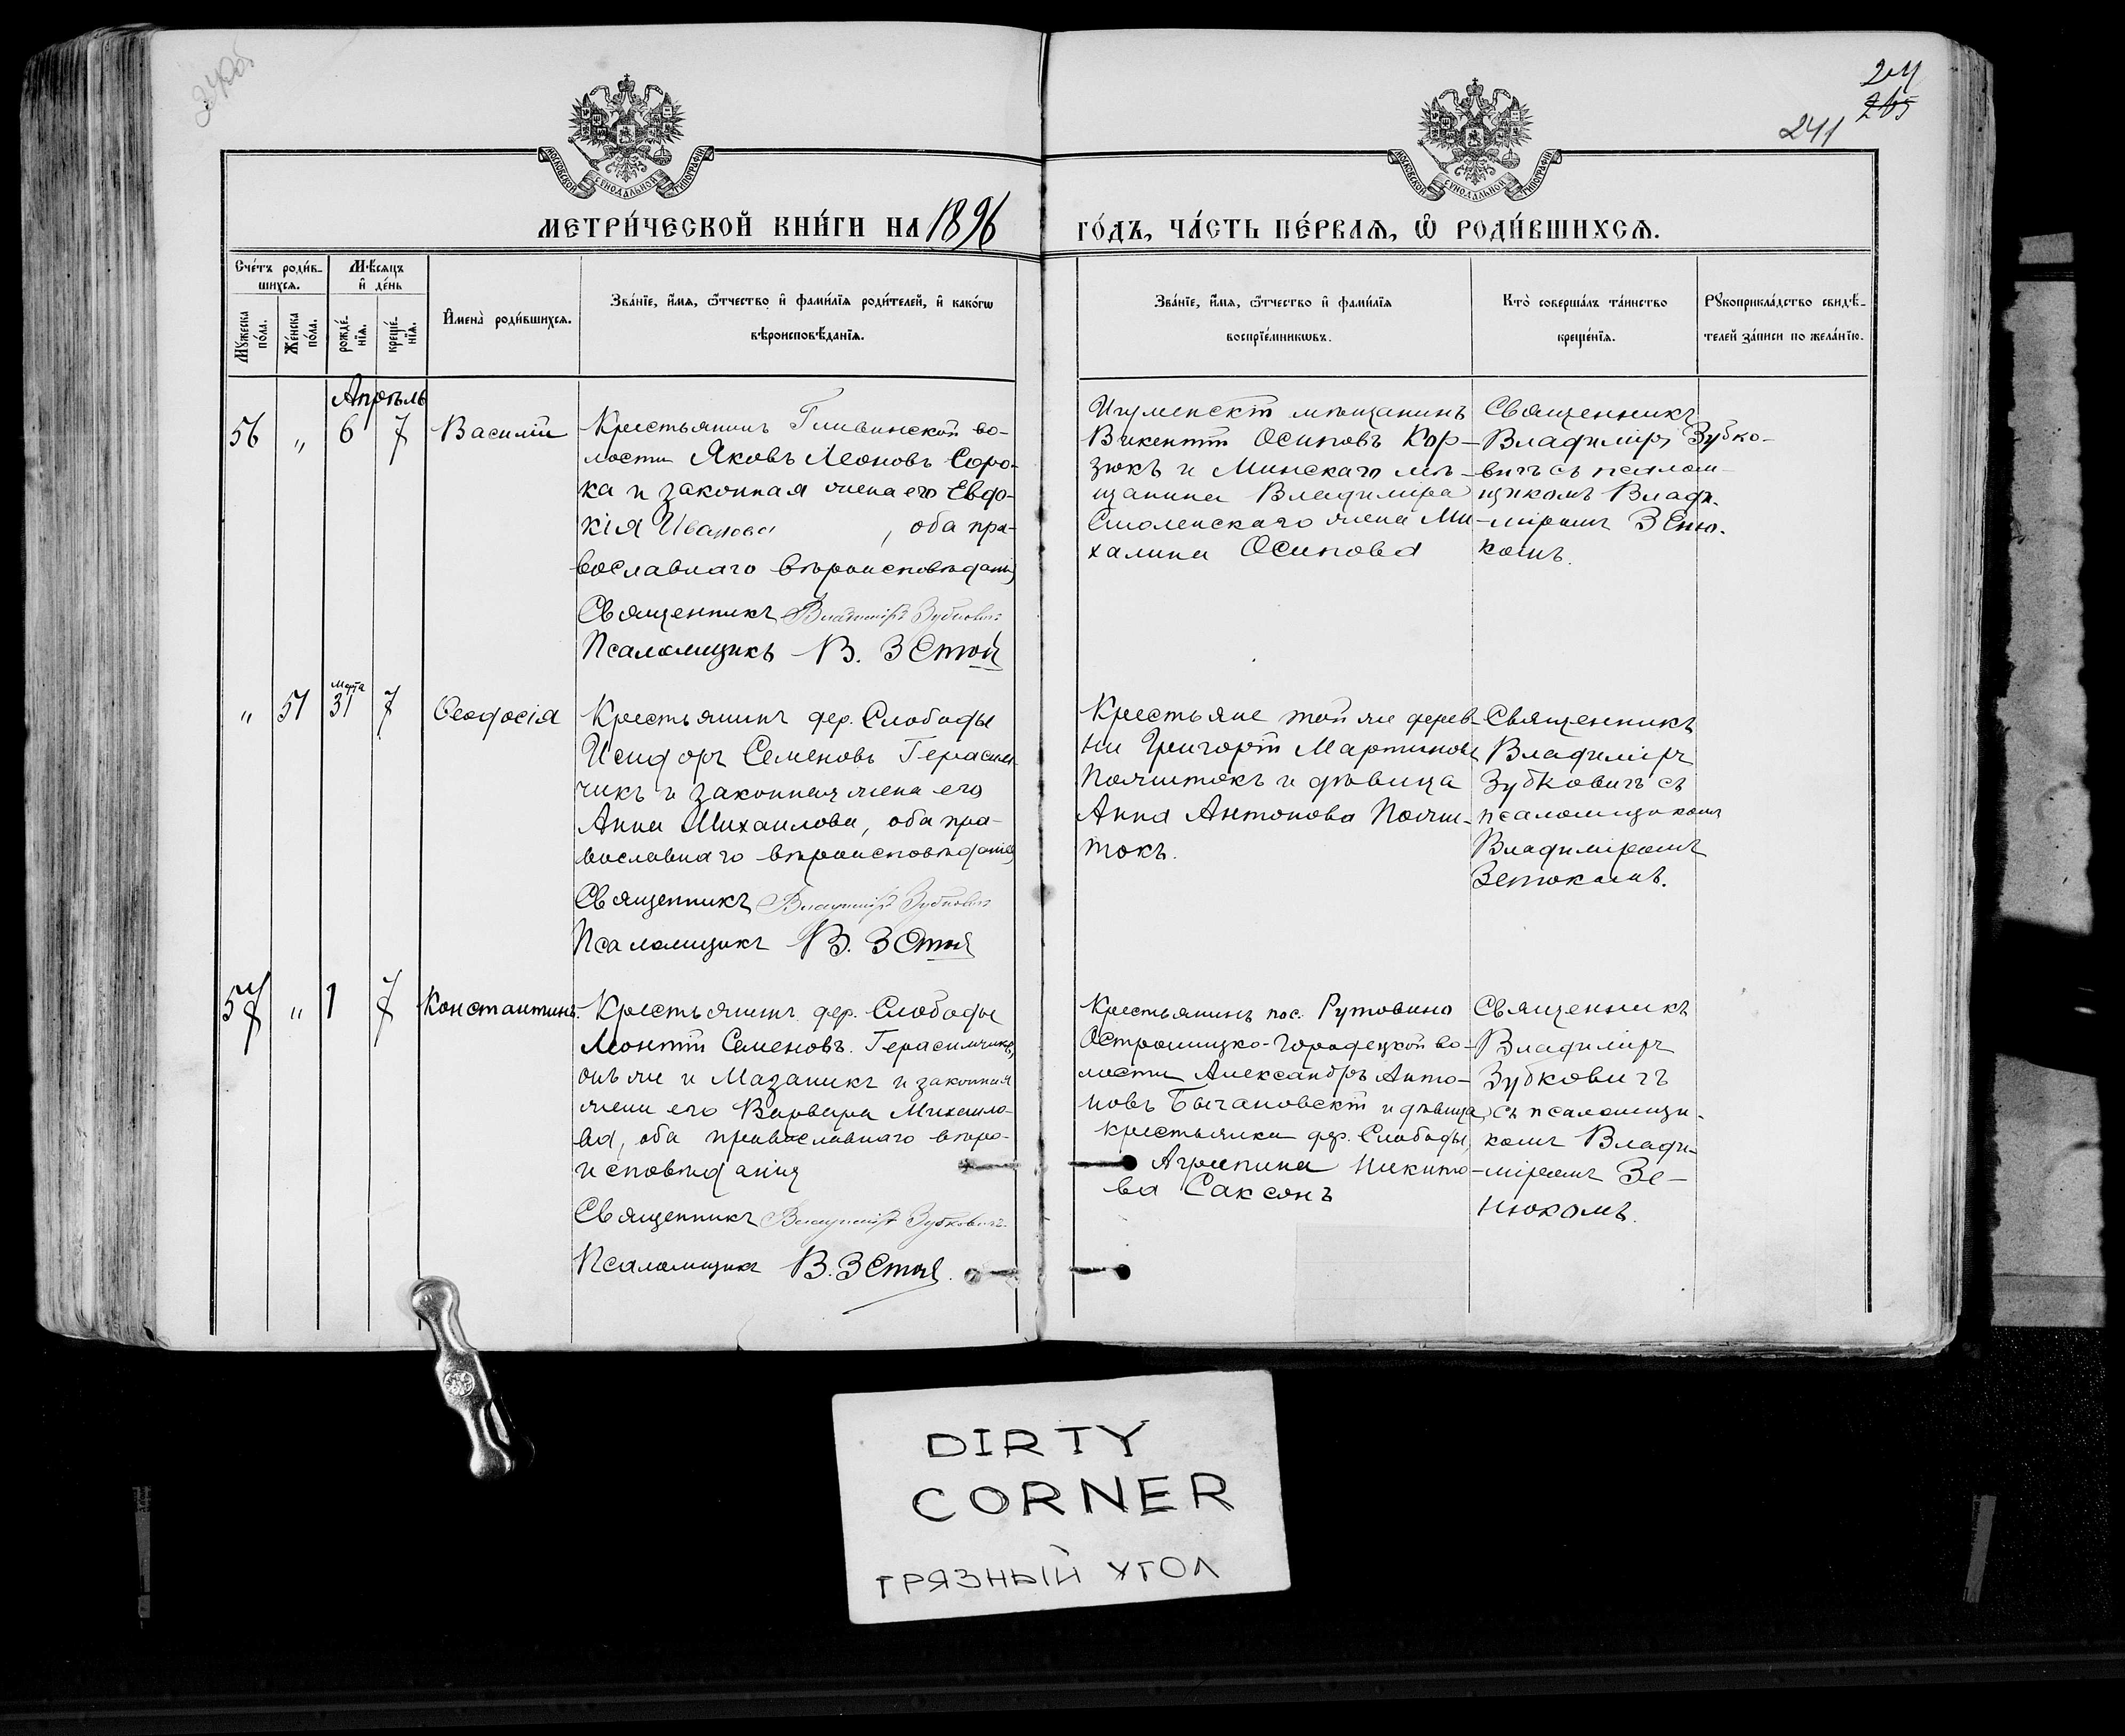 241
204
265
МОСКОВСКОЙ СУНОДАЛЬНОЙ ТИПОГРАФІИ
МОСКОВСКОЙ СУНОДАЛЬНОЙ ТИПОГРАФІИ
МЕТРИ́ЧЕСКОЙ КНИ́ГИ НА 1896 ГО́ДЪ, ЧА́СТЬ ПЕ́РВАѦ, Ѡ҆ РОДИ́ВШИХСѦ.
Сче́тъ роди́в-
шихсѧ.
Мꙋ́жеска по́ла.
Же́нска по́ла.
Мѣ́сѧцъ
и҆ де́нь
рожде́-
нїѧ.
креще́-
нїѧ.
И҆мена̀ роди́вшихсѧ.
Зва́нїе, и҆́мѧ, ѻ҆́тчество и҆ фами́лїѧ роди́телей, и҆ како́гѡ
вѣроисповѣ́данїѧ.
Зва́нїе, и҆́мѧ, ѻ҆́тчество и҆ фами́лїѧ
воспрїе́мникѡвъ.
Кто̀ соверша́лъ та́инство
креще́нїѧ.
Рꙋкоприкла́дство свидѣ́-
телей за́писи по жела́нїю.
Апрѣль
56 „ 6 7 Василій
Крестьянинъ Гливинской во-
лости Яковъ Леоновъ Соро-
ка и законная жена его Евдо-
кія Иванова , оба пра-
вославнаго вѣроисповѣданія
Священникъ Владиміръ Зубковичъ
Псаломщикъ В. Зенюкъ
Игуменскій мѣщанинъ
Викентій Осиповъ Кор-
зюкъ и Минскаго мѣ-
щанина Владиміра
Смоленскаго жена Ми-
халина Осипова
Священникъ
Владиміръ Зубко-
вичъ съ псалом-
щикомъ Влади-
міромъ Зеню-
комъ.
„ 51 Марта 31 7 Ѳеодосія
Крестьянинъ дер. Слободы
Исидоръ Семеновъ Герасим-
чикъ и законная жена его
Анна Михаилова, оба пра-
вославнаго вѣроисповѣданія
Священникъ Владиміръ Зубковичъ
Псаломщикъ В. Зенюкъ
Крестьяне той же дерев-
ни Григорій Мартиновъ
и дѣвица
Анна Антонова
токъ.
Священникъ
Владиміръ
Зубковичъ съ
псаломщикомъ
Владиміромъ
Зенюкомъ.
57 „ 1 7 Константинъ.
Крестьянинъ дер. Слободы
Леонтій Семеновъ Герасимчикъ,
онъ же и Мазаникъ и законная
жена его Варвара Михаило-
ва, оба православнаго вѣро-
исповѣданія
Священникъ Владиміръ Зубковичъ
Псаломщикъ В. Зенюкъ.
Крестьянинъ пос. Рутовино
Острошицко-Городецкой во-
лости Александръ Анто-
новъ Бычановскій и дѣвица,
крестьянка дер. Слободы,
Агрипина Никито-
ва Саксонъ
Священникъ
Владиміръ
Зубковичъ
съ псаломщи-
комъ Влади-
міромъ Зе-
нюкомъ.
DIRTY
CORNER
ГРЯЗНЫЙ УГОЛ